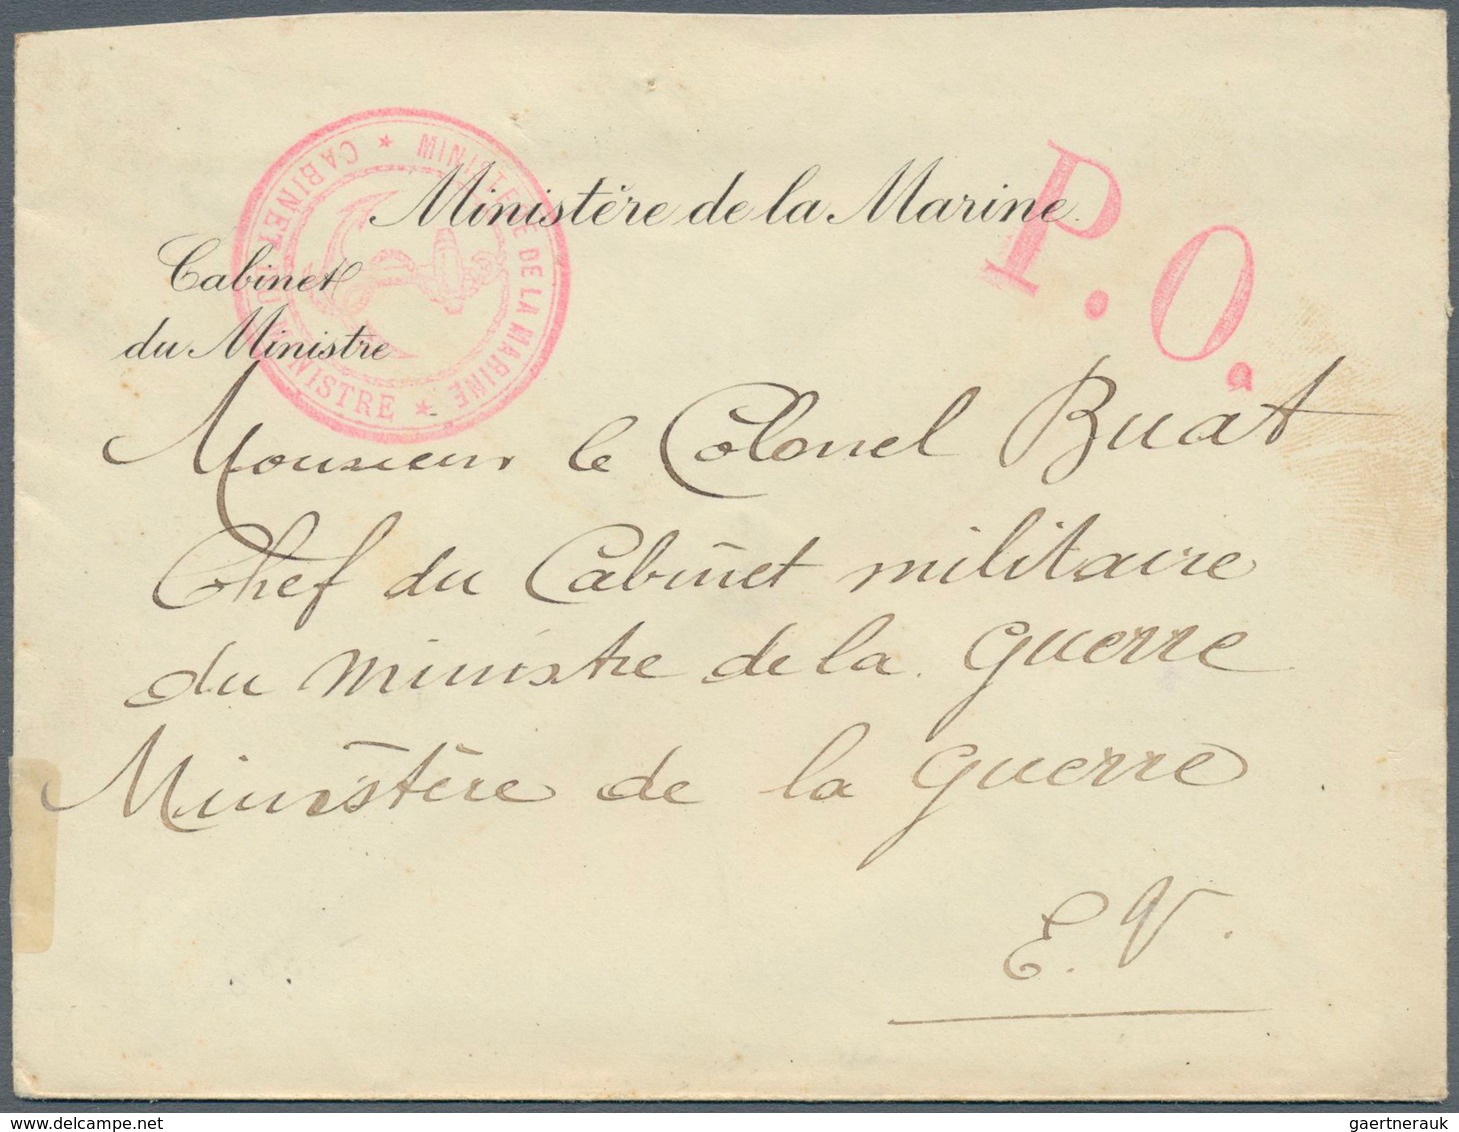 Ministère de la Marine.
Cabinet
du Ministre
MINISTÈRE DE LA MARINE ★ CABINET DU MINISTRE ★
P.O.
Monsieur le Colonel Buat
Chef du Cabinet militaire
du ministre de la guerre
Ministère de la guerre
E.V.
gaertnerauk@delcampe.net